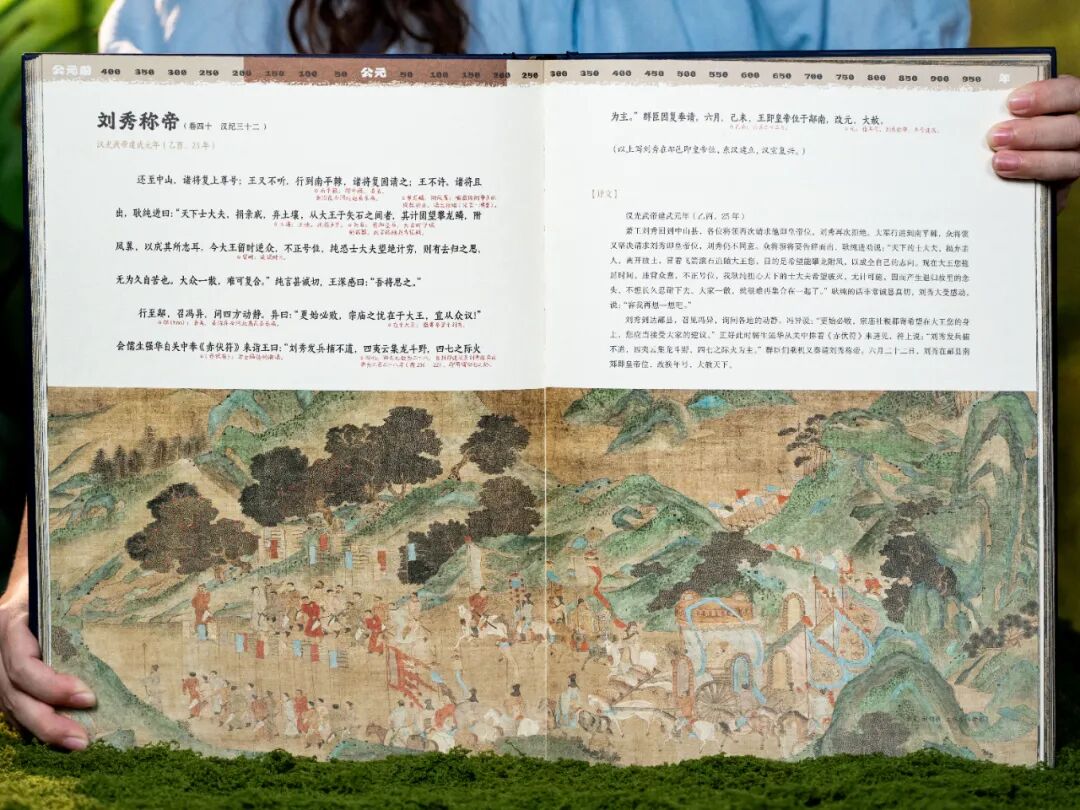 公元前 400 350 300 250 200 150 100 50 公元 50 100 150 200 250 300 350 400 450 500 550 600 650 700 750 800 850 900 950 年
刘秀称帝（卷四十 汉纪三十二）
汉光武帝建武元年（乙酉，25年）
还至中山，诸将复上尊号；王又不听。行到南平棘，诸将复固请之；王不许。诸将且
出，耿纯进曰：“天下士大夫，捐亲戚，弃土壤，从大王于矢石之间者，其计固望攀龙鳞，附
凤翼，以成其所志耳。今大王留时逆众，不正号位，纯恐士大夫望绝计穷，则有去归之思，
无为久自苦也。大众一散，难可复合。”纯言甚诚切，王深感曰：“吾将思之。”
行至鄗，召冯异，问四方动静。异曰：“更始必败，宗庙之忧在于大王，宜从众议！”
会儒生强华自关中奉《赤伏符》来诣王曰：“刘秀发兵捕不道，四夷云集龙斗野，四七之际火
为主。”群臣因复奏请。六月，己未，王即皇帝位于鄗南，改元，大赦。
（以上写刘秀在鄗邑即皇帝位，东汉建立，汉室复兴。）
【译文】
汉光武帝建武元年（乙酉，25年）
萧王刘秀回到中山县，各位将领再次请求他即皇帝位，刘秀再次拒绝。大军行进到南平棘，众将领
又坚决请求刘秀即皇帝位，刘秀仍不同意。众将领将要告辞而出，耿纯进劝说：“天下的士大夫，抛弃亲
人，离开故土，冒着飞箭滚石追随大王您，目的是希望能攀龙附凤，以成全自己的志向。现在大王您拖
延时间，违背众意，不正号位，我耿纯担心天下的士大夫希望破灭，无计可施，因而产生退归故里的念
头，不想长久忍耐下去。大家一散，就很难再集合在一起了。”耿纯的话非常诚恳真切，刘秀大受感动，
说：“容我再想一想吧。”
刘秀到达鄗县，召见冯异，询问各地的动静。冯异说：“更始必败，宗庙社稷都寄希望在大王您的身
上，您应当接受大家的建议。”正好此时儒生强华从关中捧着《赤伏符》来进见，符上说：“刘秀发兵捕
不道，四夷云集龙斗野，四七之际火为主。”群臣们乘机又奏请刘秀称帝。六月二十二日，刘秀在鄗县南
郊即皇帝位，改换年号，大赦天下。